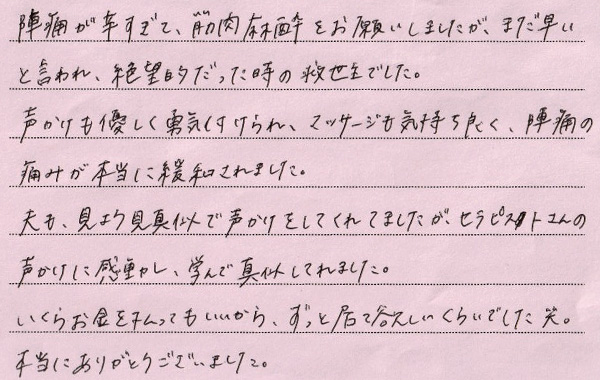 陣痛が辛すぎて、筋肉麻酔をお願いしましたが、まだ早い
と言われ、絶望的だった時の救世主でした。
声かけも優しく勇気付けられ、マッサージも気持ち良く、陣痛の
痛みが本当に緩和されました。
夫も、見よう見真似で声かけをしてくれてましたが、セラピストさんの
声かけに感動し、学んで真似してれました。
いくらお金を払ってもいいから、ずっと居て欲しいくらいでした笑。
本当にありがとうございました。